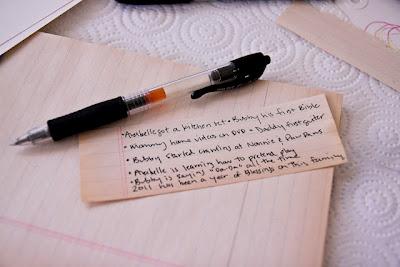 • Anabelle got a kitchen set • Bubby his first Bible
• Mommy home videos on DVD • Daddy first guitar
• Bubby started crawling at Nannie & Paw Paws
• Anabelle is learning how to pretend play
• Bubby is saying "Da Da" all the time
2011 has been a year of Blessings on this family